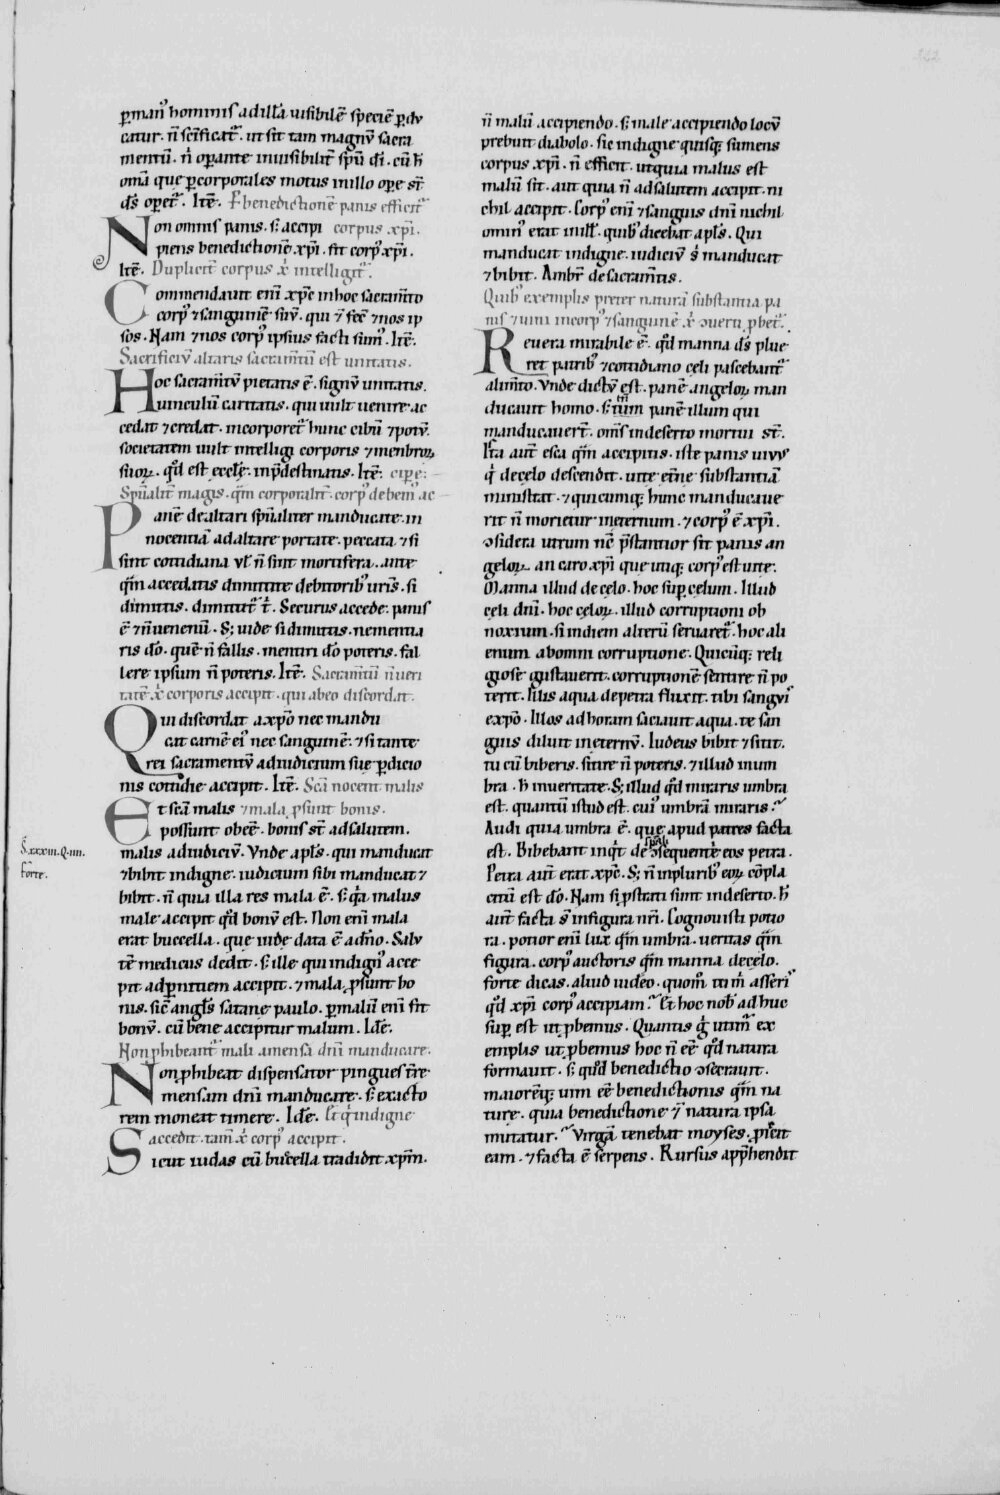 ꝑman᷒ hominis ad illā uisibilē speciē ꝑdu
catur. n̄ sc̄ificat᷑. ut sit tam magnū sacra
mentū. n̄ oꝑante inuisibilit᷑ sp̄u di. cū h̄
omā que ꝑ corporales motus in illo oꝑe st̄.
ds̄ oꝑet᷑. Itē. Per benedictionē panis efficit᷑
Non omnis panis. s; accipi corpus xp̄i.
piens benedictionē xp̄i. fit corp᷒ xp̄i.
Itē. Duplicit᷑ corpus x̄ intelligit᷑.
Commendauit eni xp̄c in hoc sacram̄to
corp᷒ ⁊ sanguinē suū. qui ⁊ fec̄ ⁊ nos ip
sos. Nam ⁊ nos corp᷒ ipsius facti sum᷒. Itē.
Sacrificiū altaris sacram̄tū est unitatis.
Hoc sacram̄tū pietatis ē. signū unitatis.
uinculū caritatis. qui uult uenire ac
cedat ⁊ credat. incorporet᷑ hunc cibū ⁊ potū.
societatem uult intelligi corporis ⁊ menbroꝝ
suoꝝ. qd̄ est eccl̄ę. in p̄destinatis. Itē. cipe.
Sp̄ualit᷑ magis. qm̄ corporalit᷑. corp᷒ debem᷒ ac
Panē de altari sp̄ualiter manducate. in
nocentiā ad altare portate. peccata ⁊ si
sint cotidiana ul̄ n̄ sint mortifera. ante
qm̄ accedatis dimittite debitorib᷒ uris̄. si
dimittis. dimittit᷑ t̄. Securus accede. panis
ē ⁊ n̄ uenenū. S; uide si dimittis. ne mentia
ris dō. quē n̄ fallis. mentiri dō poteris. fal
lere ipsum n̄ poteris. Itē. Sacram̄tū n̄ ueri
tatē x̄ corporis accipit. qui ab eo discordat.
Qui discordat a xp̄o nec mandu
cat carnē ei᷒ nec sanguinē. ⁊ si tante
rei sacramentū ad iudicium suę ꝑdicio
nis cotidie accipit. Itē. Scā nocent malis
Et scā malis ⁊ mala ꝓsunt bonis.
possunt obeē. bonis st̄ ad salutem.
malis ad iudiciū. Vnde apl̄s. qui manducat
⁊ bibit indigne. iudicium sibi manducat ⁊
bibit. n̄ quia illa res mala ē. s; qa malus
male accipit qd̄ bonū est. Non eni mala
erat buccella. que iude data ē a dn̄o. Salu
tē medicus dedit. s; ille qui indign᷒ acce
pit ad ꝑnitiem accipit. ⁊ mala ꝓsunt bo
nis. sic̄ angls̄ satanę paulo. ꝑ malū eni fit
bonū. cū bene accipitur malum. Idē.
Non ꝓhibeant᷑ mali a mensa dn̄i manducare.
Non ꝓhibeat dispensator pingues tr̄e
mensam dn̄i manducare. s; exacto
rem moneat timere. Idē. Et qi indigne
accedit. tam̄ x̄ corp᷒ accipit.
Sicut iudas cū buccella tradidit xp̄m.
S̄. xxxiii. Q. iiii.
forte.
n̄ malū accipiendo. s; male accipiendo locū
prebuit diabolo. sic indigne quisq; sumens
corpus xp̄i. n̄ efficit. ut quia malus est
malū sit. aut quia n̄ ad salutem accipit. ni
chil accipit. Corp᷒ eni ⁊ sanguis dn̄i nichil
omin᷒ erat ill̄. quib᷒ dicebat apl̄s. Qui
manducat indigne. iudiciū s̄ manducat
⁊ bibit. Ambr̄ de sacram̄tis.
Quib᷒ exemplis preter naturā substantia pa
nis ⁊ uini in corp᷒ ⁊ sanguinē x̄ ↄuerti ꝓbet᷑.
Reuera mirabile ē. qd̄ manna ds̄ plue
ret patrib᷒ ⁊ cotidiano celi pascebant᷑
alim̄to. Vnde dictū est. panē angeloꝝ man
ducauit homo. s; tam̄ panē illum qui
manducauert̄. oms̄ in deserto mortui st̄.
Ista aut̄ esca qm̄ accipitis. iste panis uiuus
q̄ de cęlo descendit. uite et̄ne substantiā
ministrat. ⁊ quicumq; hunc manducaue
rit n̄ morietur in ęternum. ⁊ corp᷒ ē xp̄i.
ↄsidera utrum nc̄ p̄stantior sit panis an
geloꝝ. an caro xp̄i que utiq; corp᷒ est uite.
Manna illud de cęlo. hoc suꝑ cęlum. Illud
cęli dn̄i. hoc cęloꝝ. illud corruptioni ob
noxium. si in diem alterū seruaret᷑. hoc ali
enum ab omni corruptione. Quicūq; reli
giose gustauerit. corruptionē sentire n̄ po
terit. Illis aqua de petra fluxit. tibi sangui᷒
e xp̄o. Illos ad horam saciauit aqua. te san
guis diluit in ęternū. Iudeus bibit ⁊ sitit.
tu cū biberis. sitire n̄ poteris. ⁊ illud in um
bra. h̄ in ueritate. S; illud qd̄ miraris umbra
est. quantū istud est. cui᷒ umbrā miraris?
Audi quia umbra ē. que apud patres facta
est. Bibebant inqt̄ de sp̄uali ↄsequente eos petra.
Petra aut̄ erat xp̄c. S; n̄ in plurib᷒ eoꝝ cōpla
citū est dō. Nam ⁊ ꝓstrati sunt in deserto. h̄
aut̄ facta st̄ in figura nr̄i. Cognouisti potio
ra. potior eni lux qm̄ umbra. ueritas qm̄
figura. corp᷒ auctoris qm̄ manna de cęlo.
forte dicas. aliud uideo. quom̄ tu m̄ asseris
qd̄ xp̄i corp᷒ accipiam? Et hoc nob̄ adhuc
suꝑ est ut ꝓbemus. Quantis ḡ utim᷑ ex
emplis ut ꝓbemus hoc n̄ eē qd̄ natura
formauit. s; quod benedictio ↄsecrauit.
maiorēq; uim eē benedictionis qm̄ na
ture. quia benedictione ⁊ natura ipsa
mutatur. Virgā tenebat moyses. ꝓiecit
eam. ⁊ facta ē serpens. Rursus app̄hendit